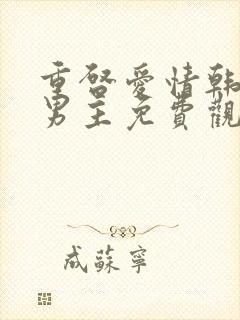 重啓愛情韓
男主免費觀
成蘇寧